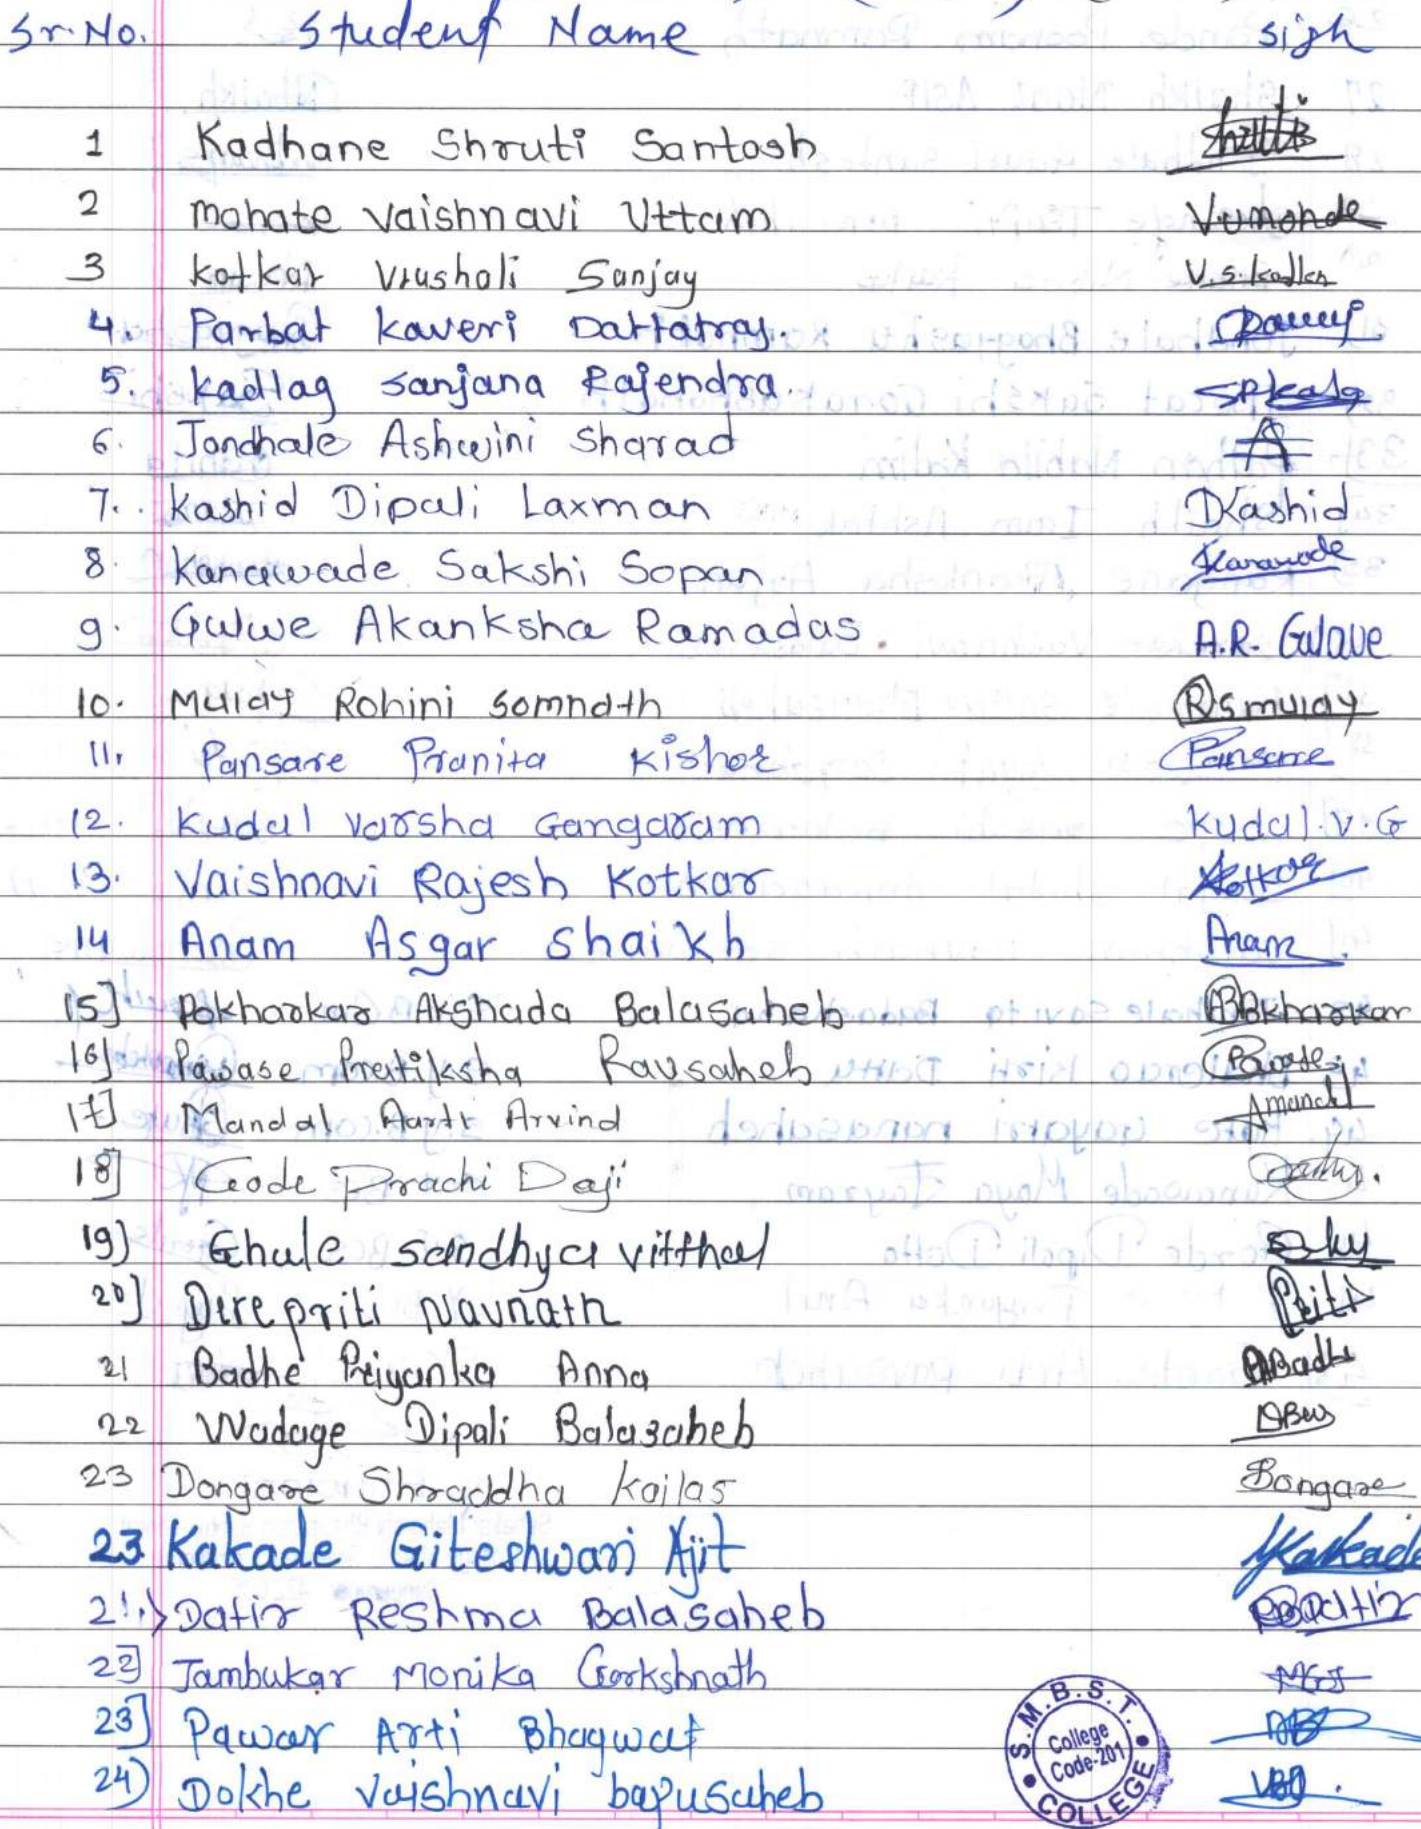 Sr. No. Student Name sign
1 Kadhane Shruti Santosh
2 Mohate Vaishnavi Uttam
3 Kotkar Vrushali Sanjay V.S.Kadlag
4. Parbat Kaveri Dattatray.
5. Kadlag Sanjana Rajendra.
6. Jondhale Ashwini Sharad A
7. Kashid Dipali Laxman DKashid
8. Kanawade Sakshi Sopan Kanawade
9. Gulwe Akanksha Ramadas A.R. Gulave
10. Mulay Rohini Somnath RSmulay
11. Pansare Pranita Kishor Pansare
12. Kudal Varsha Gangaram Kudal.V.G
13. Vaishnavi Rajesh Kotkar Kotkar
14 Anam Asgar Shaikh Anam
15] Pokharkar Akshada Balasaheb ABPokharkar
16] Pawase Pratiksha Ravsaheb Pawase
17] Mandal Aarti Arvind Amandal
18] Gode Prachi Daji
19) Ghule Sandhya Vitthal
20) Dere priti Navnath Priti
21 Badhe Priyanka Anna Badhe
22 Wadage Dipali Balasaheb DBW
23 Dongare Shraddha Kailas Dongare
23 Kakade Giteshwari Ajit Kakade
21.) Datir Reshma Balasaheb RBDatir
22] Jambukar Monika Gorkshnath MGJ
23] Pawar Arti Bhagwat
24) Dokhe Vaishnavi bapusaheb VBD
S.M.B.S.T. COLLEGE
College
Code-201